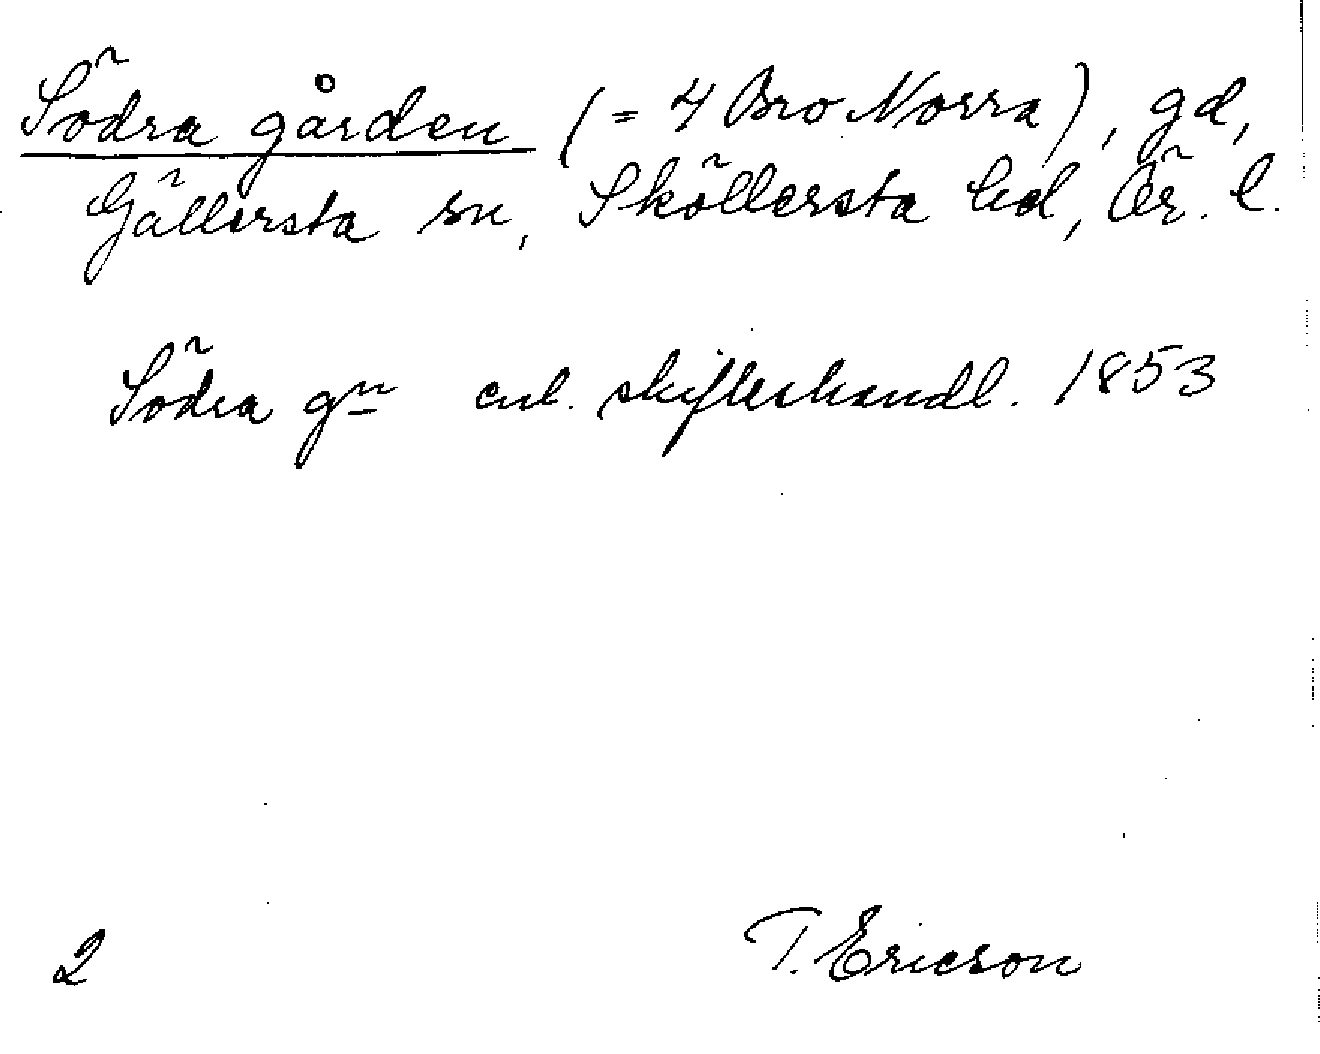 Södra gården (= 4 Bro Norra), gd,
Gällersta sn, Sköllersta hd, Ör. l.
Södra gn enl. skifteshandl. 1853
T. Ericson
2